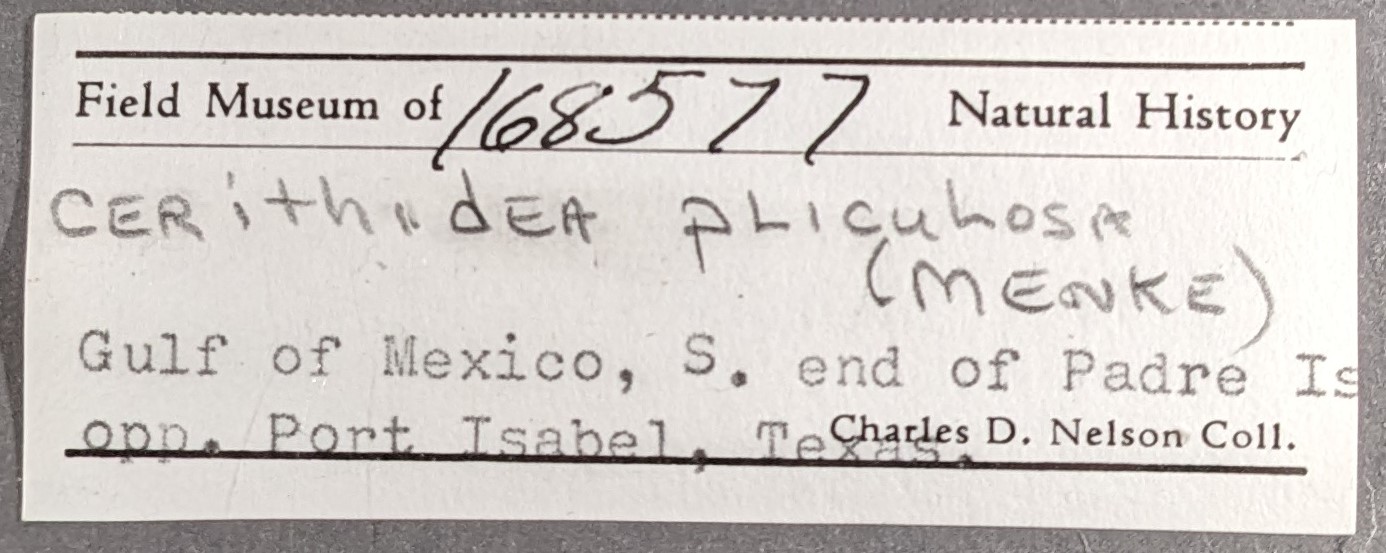 Field Museum of 168577 Natural History
CERithidEA pLicuLosA
(MENKE)
Gulf of Mexico, S. end of Padre Is
opp. Port Isabel, Texas. Charles D. Nelson Coll.